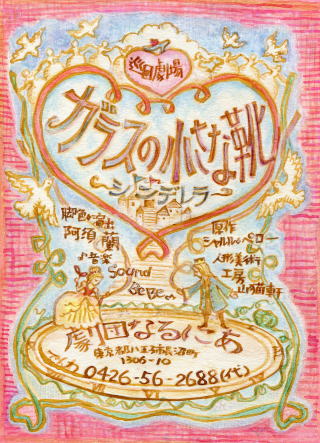 巡回劇場
ガラスの小さな靴
～シンデレラ～
脚色・演出
阿須 蘭
原作
シャルル・ペロー
音楽
Sound BeBe
人形美術
工房
山猫軒
劇団なるにあ
東京都八王子市長沼町
1306-10
0426-56-2688(代)